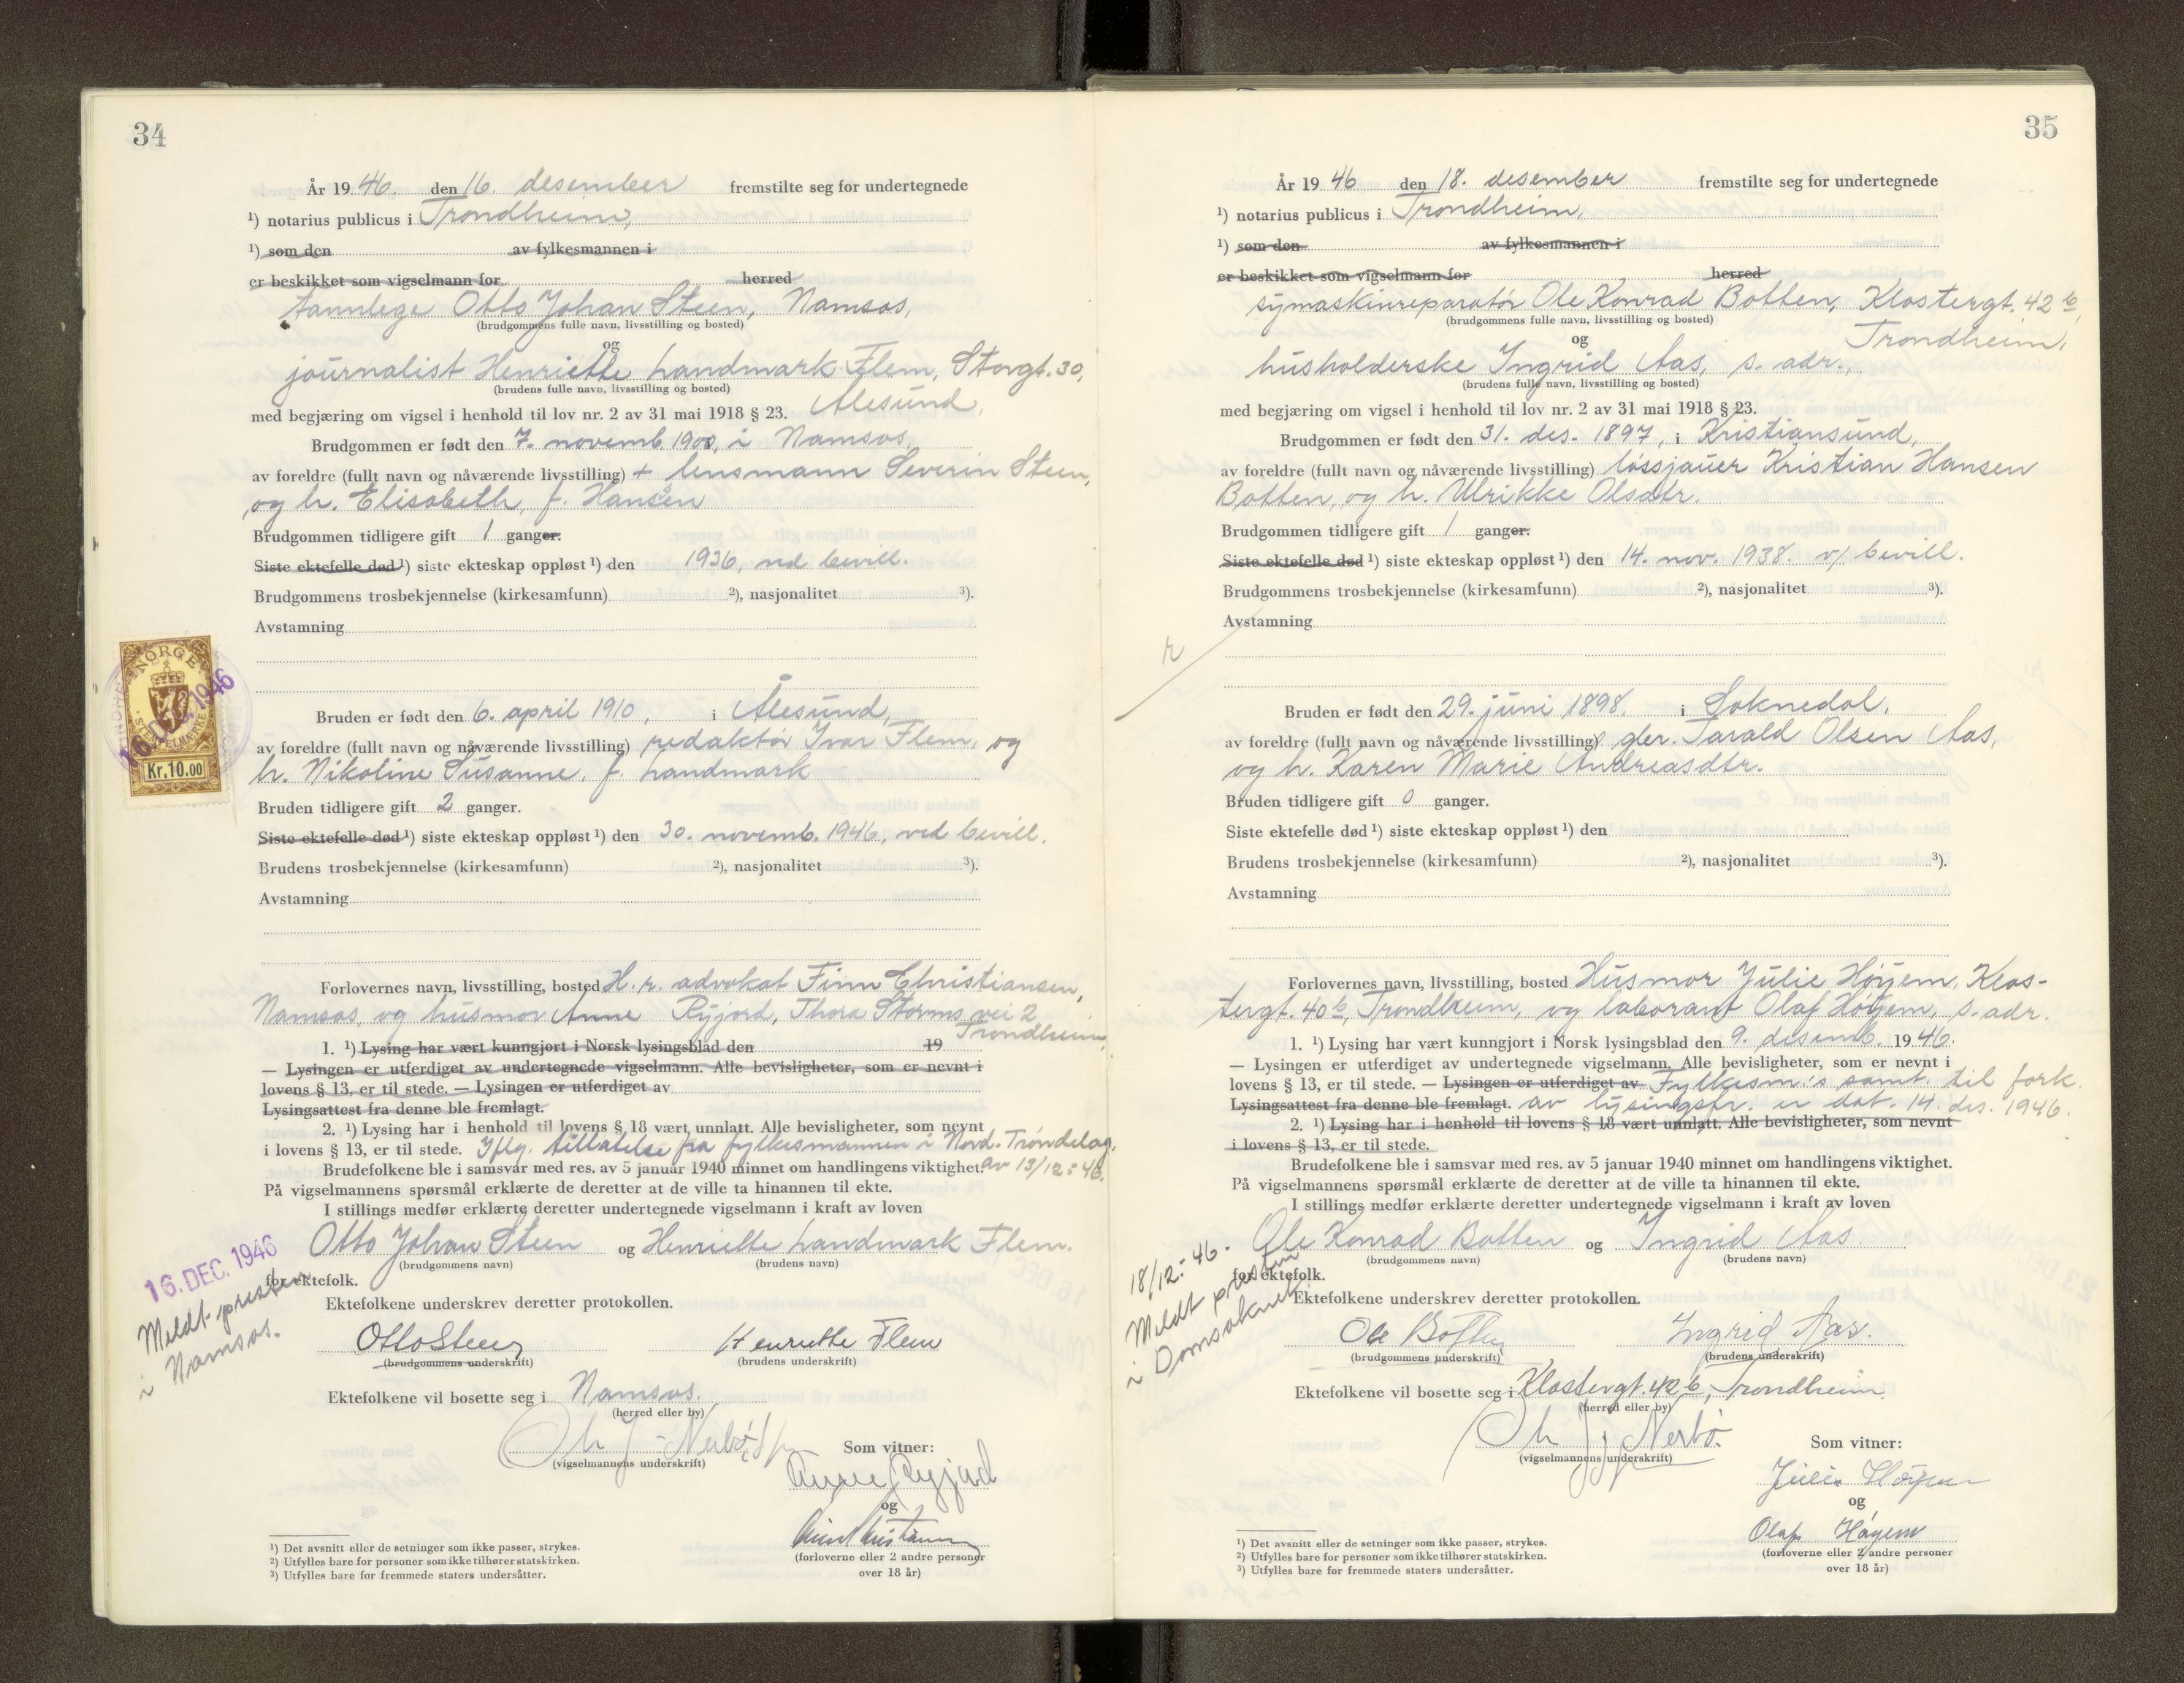 34
År 1946. den 16. desember fremstilte seg for undertegnede
¹) notarius publicus i Trondheim,
¹) som den av fylkesmannen i
er beskikket som vigselmann for herred
tannlege Otto Johan Steen, Namsos,
(brudgommens fulle navn, livsstilling og bosted)
og
journalist Henriette Landmark Flem, Storgt. 30,
(brudens fulle navn, livsstilling og bosted)
med begjæring om vigsel i henhold til lov nr. 2 av 31 mai 1918 § 23. Ålesund,
Brudgommen er født den 7. novemb. 1900, i Namsos,
av foreldre (fullt navn og nåværende livsstilling) + lensmann Severin Steen,
og h. Elisabeth, f. Hansen
Brudgommen tidligere gift 1 ganger.
Siste ektefelle død¹) siste ekteskap oppløst¹) den 1936, ved bevill.
Brudgommens trosbekjennelse (kirkesamfunn) ²), nasjonalitet ³).
Avstamning
NORGE
STEMPELMERKE
16. DEC. 1946
Kr. 10.00
Bruden er født den 6. april 1910, i Ålesund,
av foreldre (fullt navn og nåværende livsstilling) redaktør Ivar Flem, og
h. Nikoline Susanne, f. Landmark
Bruden tidligere gift 2 ganger.
Siste ektefelle død¹) siste ekteskap oppløst¹) den 30. novemb. 1946, ved bevill.
Brudens trosbekjennelse (kirkesamfunn) ²), nasjonalitet ³).
Avstamning
Forlovernes navn, livsstilling, bosted H. r. advokat Finn Christiansen,
Namsos, og husmor Anne Ryjord, Thora Storms vei 2
Trondheim,
1. ¹) Lysing har vært kunngjort i Norsk lysingsblad den 19
— Lysingen er utferdiget av undertegnede vigselmann. Alle bevisligheter, som er nevnt i
lovens § 13, er til stede. — Lysingen er utferdiget av
Lysingsattest fra denne ble fremlagt.
2. ¹) Lysing har i henhold til lovens § 18 vært unnlatt. Alle bevisligheter, som nevnt
i lovens § 13, er til stede. Iflg. tillatelse fra fylkesmannen i Nord-Trøndelag,
Brudefolkene ble i samsvar med res. av 5 januar 1940 minnet om handlingens viktighet. av 13/12-46.
På vigselmannens spørsmål erklærte de deretter at de ville ta hinannen til ekte.
I stillings medfør erklærte deretter undertegnede vigselmann i kraft av loven
Otto Johan Steen og Henriette Landmark Flem.
(brudgommens navn) (brudens navn)
for ektefolk.
16. DEC. 1946
Meldt presten
i Namsos.
Ektefolkene underskrev deretter protokollen.
Otto Steen Henriette Flem
(brudgommens underskrift) (brudens underskrift)
Ektefolkene vil bosette seg i Namsos.
(herred eller by)
Nerbö
(vigselmannens underskrift)
Som vitner:
Anne Ryjord
og
(forloverne eller 2 andre personer
over 18 år)
¹) Det avsnitt eller de setninger som ikke passer, strykes.
²) Utfylles bare for personer som ikke tilhører statskirken.
³) Utfylles bare for fremmede staters undersåtter.
35
År 1946 den 18. desember fremstilte seg for undertegnede
¹) notarius publicus i Trondheim,
¹) som den av fylkesmannen i
er beskikket som vigselmann for herred
symaskinreparatör Ole Konrad Botten, Klostergt. 42 b,
(brudgommens fulle navn, livsstilling og bosted)
og Trondheim,
husholderske Ingrid Aas, s. adr.,
(brudens fulle navn, livsstilling og bosted)
med begjæring om vigsel i henhold til lov nr. 2 av 31 mai 1918 § 23.
Brudgommen er født den 31. des. 1897, i Kristiansund,
av foreldre (fullt navn og nåværende livsstilling) løssjauer Kristian Hansen
Botten, og h. Ulrikke Olsdtr.
Brudgommen tidligere gift 1 ganger.
Siste ektefelle død¹) siste ekteskap oppløst¹) den 14. nov. 1938. v/ bevill.
Brudgommens trosbekjennelse (kirkesamfunn) ²), nasjonalitet ³).
Avstamning
Bruden er født den 29. juni 1898. i Soknedal,
av foreldre (fullt navn og nåværende livsstilling) gbr. Tarald Olsen Aas,
og h. Karen Marie Andreasdtr.
Bruden tidligere gift 0 ganger.
Siste ektefelle død¹) siste ekteskap oppløst¹) den
Brudens trosbekjennelse (kirkesamfunn) ²), nasjonalitet ³).
Avstamning
Forlovernes navn, livsstilling, bosted Husmor Julie Höyem, Klos-
tergt. 40 b, Trondheim, og laborant Olaf Höyem, s. adr.
1. ¹) Lysing har vært kunngjort i Norsk lysingsblad den 9. desemb. 1946.
— Lysingen er utferdiget av undertegnede vigselmann. Alle bevisligheter, som er nevnt i
lovens § 13, er til stede. — Lysingen er utferdiget av Fylkesm.'s samt. til fork.
Lysingsattest fra denne ble fremlagt. av lysingsfr. er dat. 14. des. 1946.
2. ¹) Lysing har i henhold til lovens § 18 vært unnlatt. Alle bevisligheter, som nevnt
i lovens § 13, er til stede.
Brudefolkene ble i samsvar med res. av 5 januar 1940 minnet om handlingens viktighet.
På vigselmannens spørsmål erklærte de deretter at de ville ta hinannen til ekte.
I stillings medfør erklærte deretter undertegnede vigselmann i kraft av loven
Ole Konrad Botten og Ingrid Aas.
(brudgommens navn) (brudens navn)
for ektefolk.
18/12-46.
Meldt presten
i Domsoknet
Ektefolkene underskrev deretter protokollen.
Ole Botten Ingrid Aas.
(brudgommens underskrift) (brudens underskrift)
Ektefolkene vil bosette seg i Klostergt. 42 b, Trondheim.
(herred eller by)
Nerbö.
(vigselmannens underskrift)
Som vitner:
Julie Höyem
og
Olaf Höyem
(forloverne eller 2 andre personer
over 18 år)
¹) Det avsnitt eller de setninger som ikke passer, strykes.
²) Utfylles bare for personer som ikke tilhører statskirken.
³) Utfylles bare for fremmede staters undersåtter.